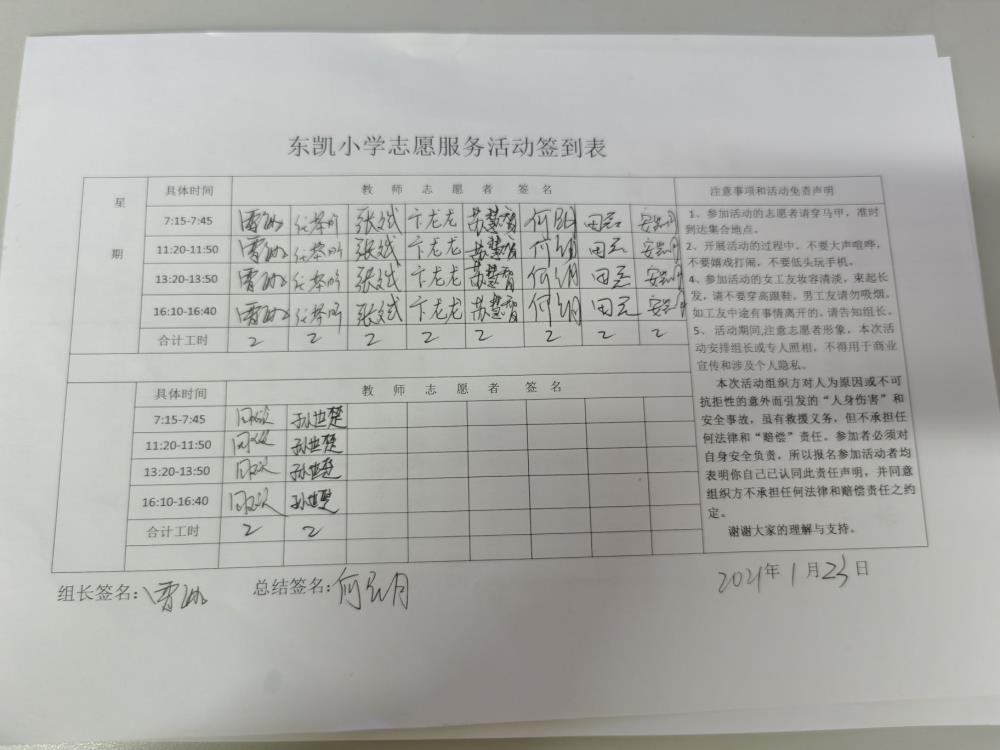 东凯小学志愿服务活动签到表
星期
具体时间 教师志愿者签名 注意事项和活动免责声明
7:15-7:45 张斌 卞龙龙 苏慧智 田云
11:20-11:50 张斌 卞龙龙 苏慧智 田云
13:20-13:50 张斌 卞龙龙 苏慧智 田云
16:10-16:40 张斌 卞龙龙 苏慧智 田云
合计工时 2 2 2 2 2 2 2 2
具体时间 教师志愿者签名
7:15-7:45 孙世楚
11:20-11:50 孙世楚
13:20-13:50 孙世楚
16:10-16:40 孙世楚
合计工时 2 2
1、参加活动的志愿者请穿马甲，准时
到达集合地点。
2、开展活动的过程中，不要大声喧哗，
不要嬉戏打闹，不要低头玩手机。
4、参加活动的女工友妆容清淡，束起长
发，请不要穿高跟鞋，男工友请勿吸烟。
如工友中途有事情离开的，请告知组长。
5、活动期间,注意志愿者形象，本次活
动安排组长或专人照相，不得用于商业
宣传和涉及个人隐私。
本次活动组织方对人为原因或不可
抗拒性的意外而引发的“人身伤害”和
安全事故，虽有救援义务，但不承担任
何法律和“赔偿”责任。参加者必须对
自身安全负责，所以报名参加活动者均
表明你自己已认同此责任声明，并同意
组织方不承担任何法律和赔偿责任之约
定。
谢谢大家的理解与支持。
组长签名： 总结签名：
2021年1月23日